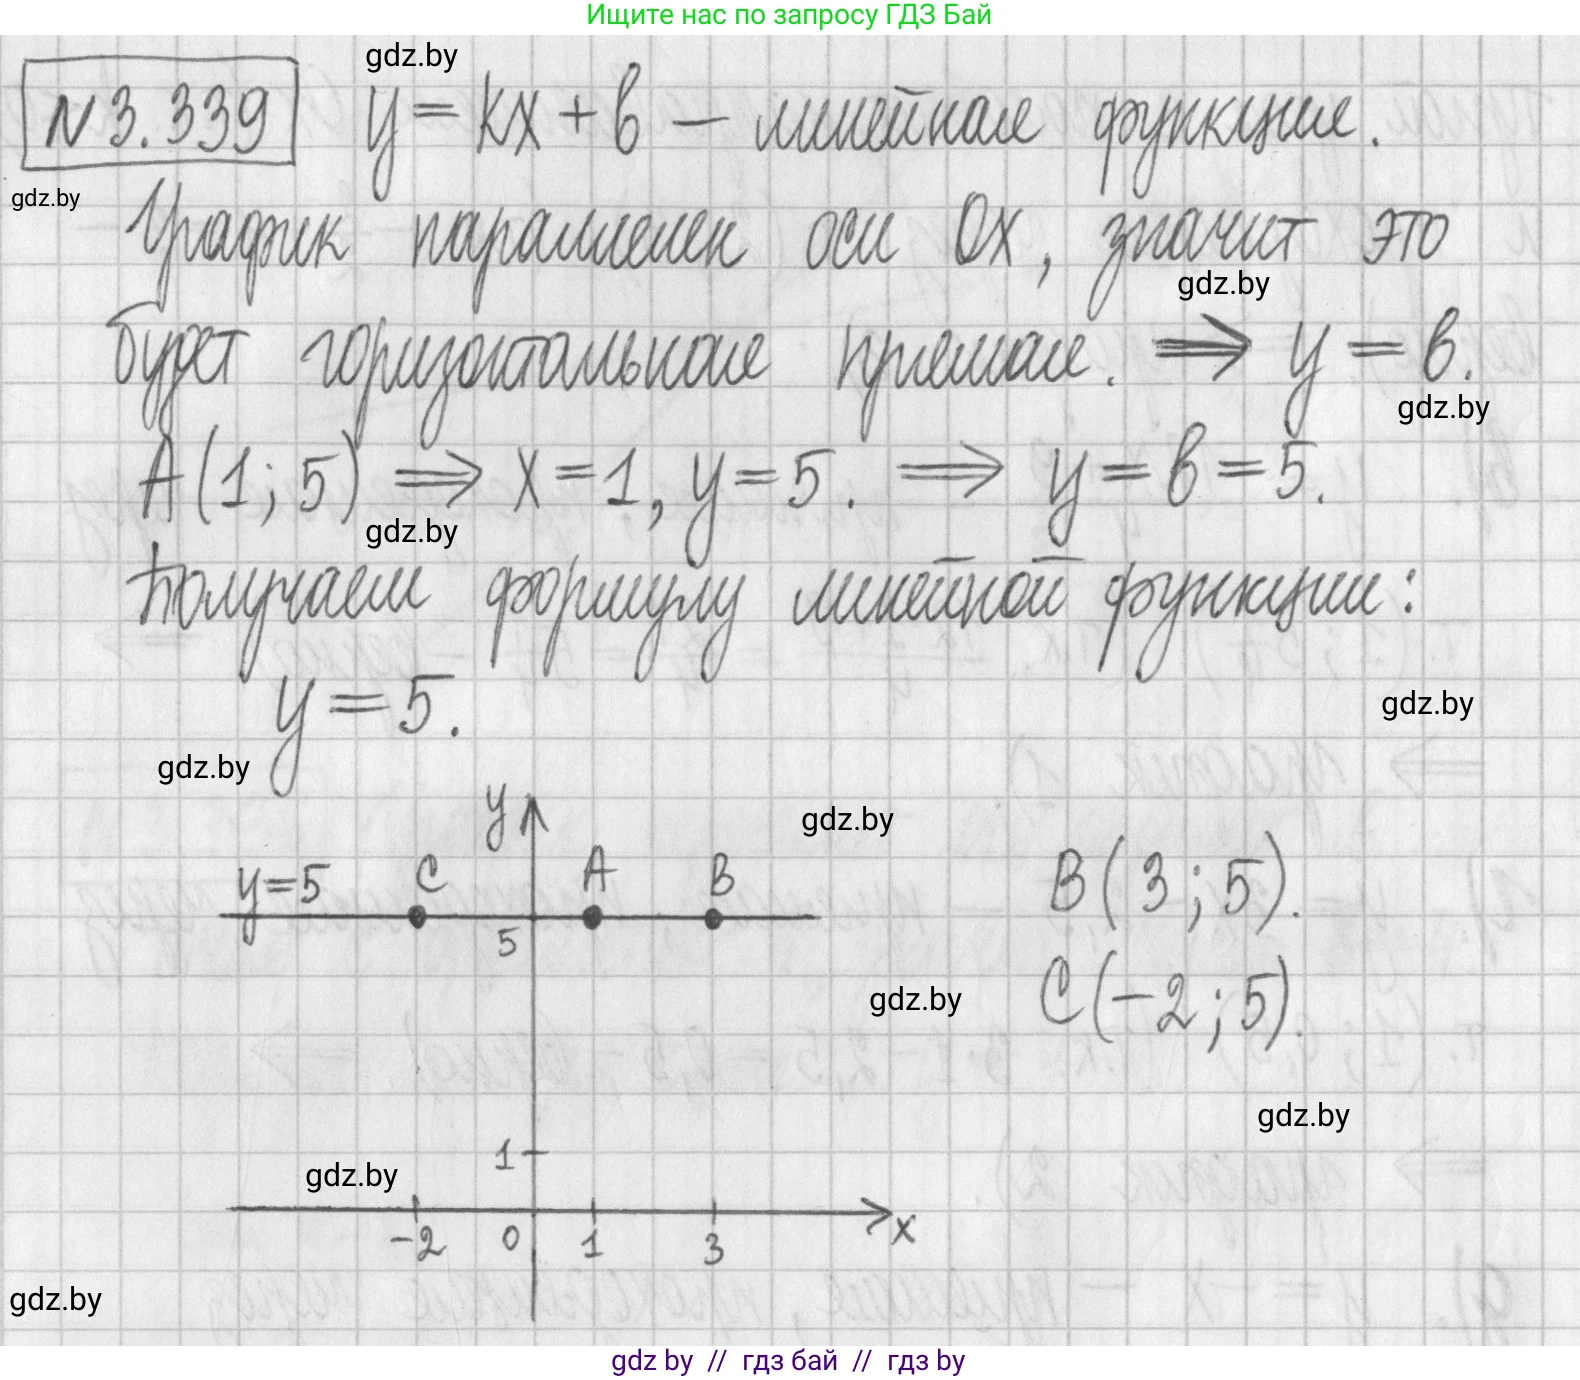 Ищите нас по запросу ГДЗ Бай
gdz.by
N 3.339 y = kx + b — линейная функция.
gdz.by
График параллелен оси Ox, значит это
gdz.by
будет горизонтальная прямая. ⇒ y = b.
gdz.by
A(1; 5) ⇒ x = 1, y = 5. ⇒ y = b = 5.
gdz.by
Получаем формулу линейной функции:
y = 5.
gdz.by
gdz.by
y
gdz.by
y=5 C A B
B(3; 5).
5
C(-2; 5).
gdz.by
gdz.by
1
gdz.by
-2 0 1 3 x
gdz.by
gdz by // гдз бай // гдз by